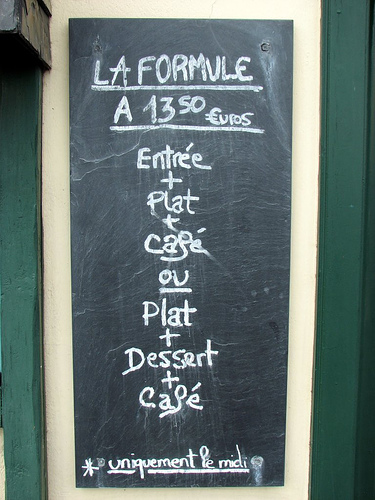 LA FORMULE
A 1350 €uros
Entrée
+
Plat
+
Café
ou
Plat
+
Dessert
+
Café
* uniquement le midi